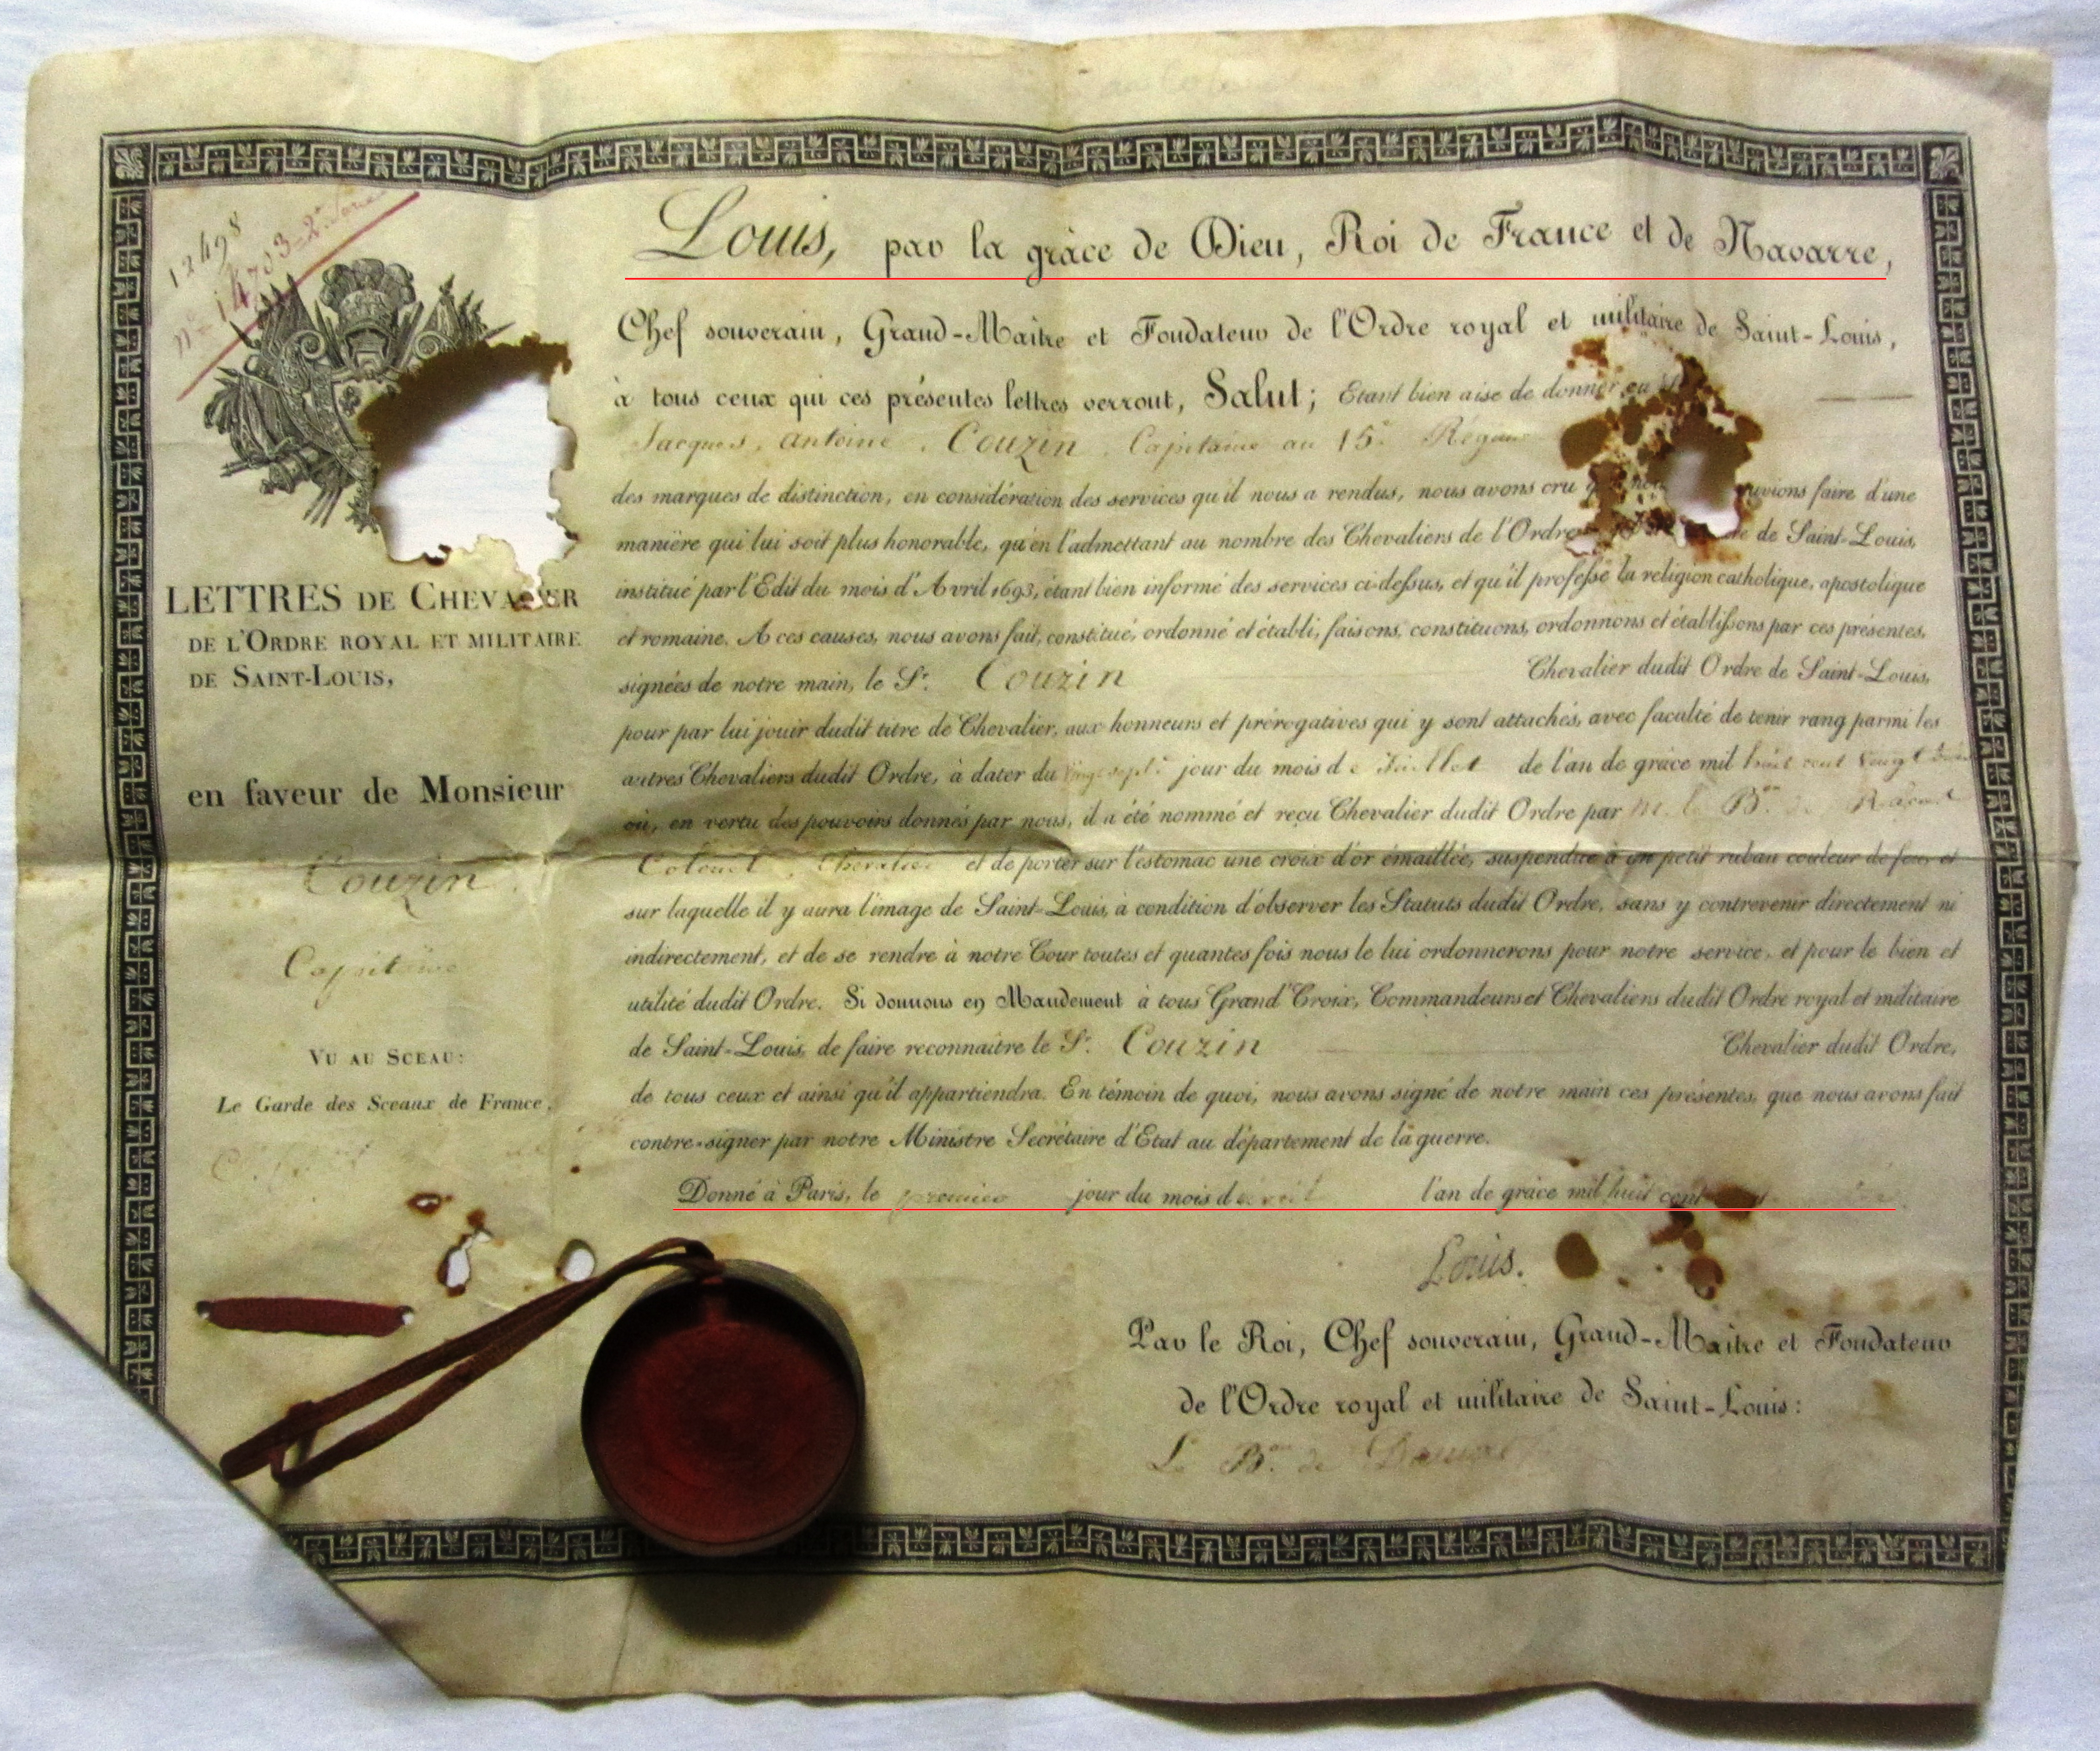 12498
n° 14703=2e
Louis, par la grâce de Dieu, Roi de France et de Navarre,
Chef souverain, Grand-Maître et Fondateur de l'Ordre royal et militaire de Saint-Louis,
à tous ceux qui ces présentes lettres verront, Salut; Etant bien aise de donner au
Jacques, Antoine, Couzin, Capitaine au 15e
des marques de distinction, en considération des services qu'il nous a rendus, nous avons cru faire d'une
manière qui lui soit plus honorable, qu'en l'admettant au nombre des Chevaliers de l'Ordre de Saint-Louis,
institué par l'Edit du mois d'Avril 1693, étant bien informé des services ci-dessus, et qu'il professe la religion catholique, apostolique
et romaine. A ces causes, nous avons fait, constitué, ordonné et établi, faisons, constituons, ordonnons et établissons par ces présentes,
signées de notre main, le Sr. Couzin Chevalier dudit Ordre de Saint-Louis,
pour par lui jouir dudit titre de Chevalier, aux honneurs et prérogatives qui y sont attachés, avec faculté de tenir rang parmi les
autres Chevaliers dudit Ordre, à dater du vingt sept jour du mois de Juillet de l'an de grâce mil huit cent vingt
où, en vertu des pouvoirs donnés par nous, il a été nommé et reçu Chevalier dudit Ordre par M. le Bon de
Colonel, Chevalier et de porter sur l'estomac une croix d'or émaillée, suspendue à un petit ruban couleur de feu, et
sur laquelle il y aura l'image de Saint-Louis, à condition d'observer les Statuts dudit Ordre, sans y contrevenir directement ni
indirectement, et de se rendre à notre Cour toutes et quantes fois nous le lui ordonnerons pour notre service, et pour le bien et
utilité dudit Ordre. Si donnons en Mandement à tous Grand'Croix, Commandeurs et Chevaliers dudit Ordre royal et militaire
de Saint-Louis, de faire reconnaître le Sr. Couzin Chevalier dudit Ordre,
de tous ceux et ainsi qu'il appartiendra. En témoin de quoi, nous avons signé de notre main ces présentes, que nous avons fait
contre-signer par notre Ministre Secrétaire d'Etat au département de la guerre.
Donné à Paris, le premier jour du mois d'avril l'an de grâce mil huit cent
Louis.
Par le Roi, Chef souverain, Grand-Maître et Fondateur
de l'Ordre royal et militaire de Saint-Louis:
Le Bon de Damas
LETTRES DE CHEVALIER
DE L'ORDRE ROYAL ET MILITAIRE
DE SAINT-LOUIS,
en faveur de Monsieur
Couzin
Capitaine
VU AU SCEAU:
Le Garde des Sceaux de France,